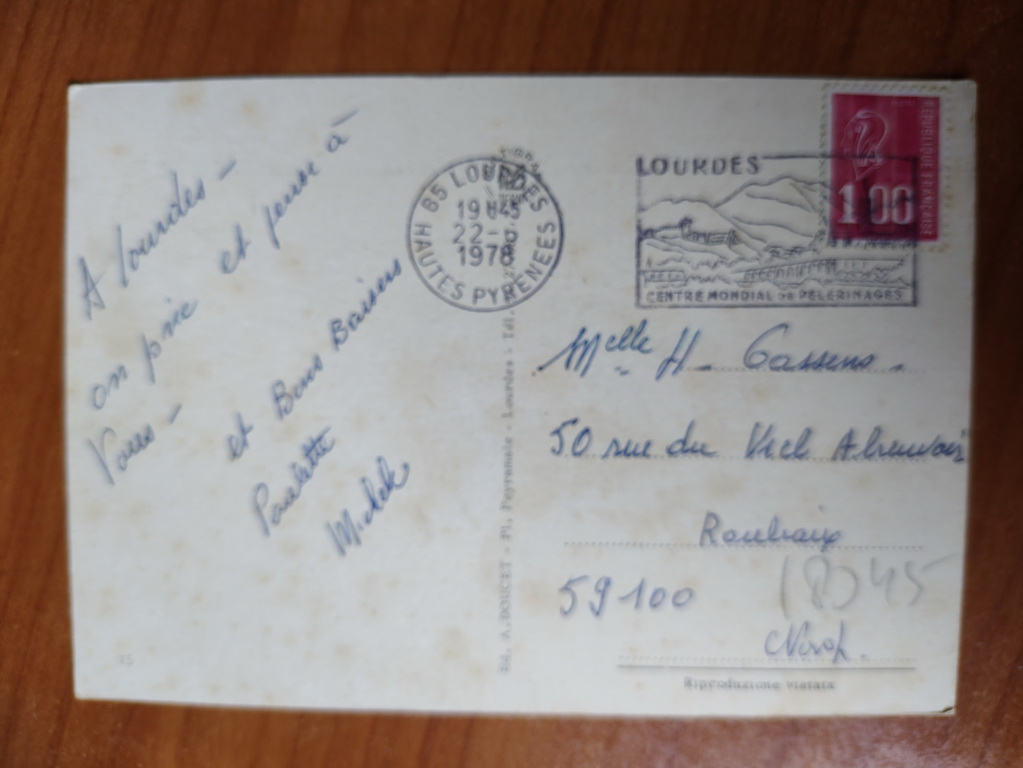 A Lourdes -
on prie et pense à
Vous -
et Bons Baisers
Paulette
Michek
65 LOURDES
19 H 45
22 -
1978
HAUTES PYRENEES
LOURDES
CENTRE MONDIAL DE PELERINAGES
REPUBLIQUE FRANCAISE
1.00
Melle H. Cassens.
50 rue du Vieil Abreuvoir
Roubaix
59100
18045
Nord.
Ed. A. DOUCET - Pl. Peyramale - Lourdes - Tél.
Riproduzione vietata
45